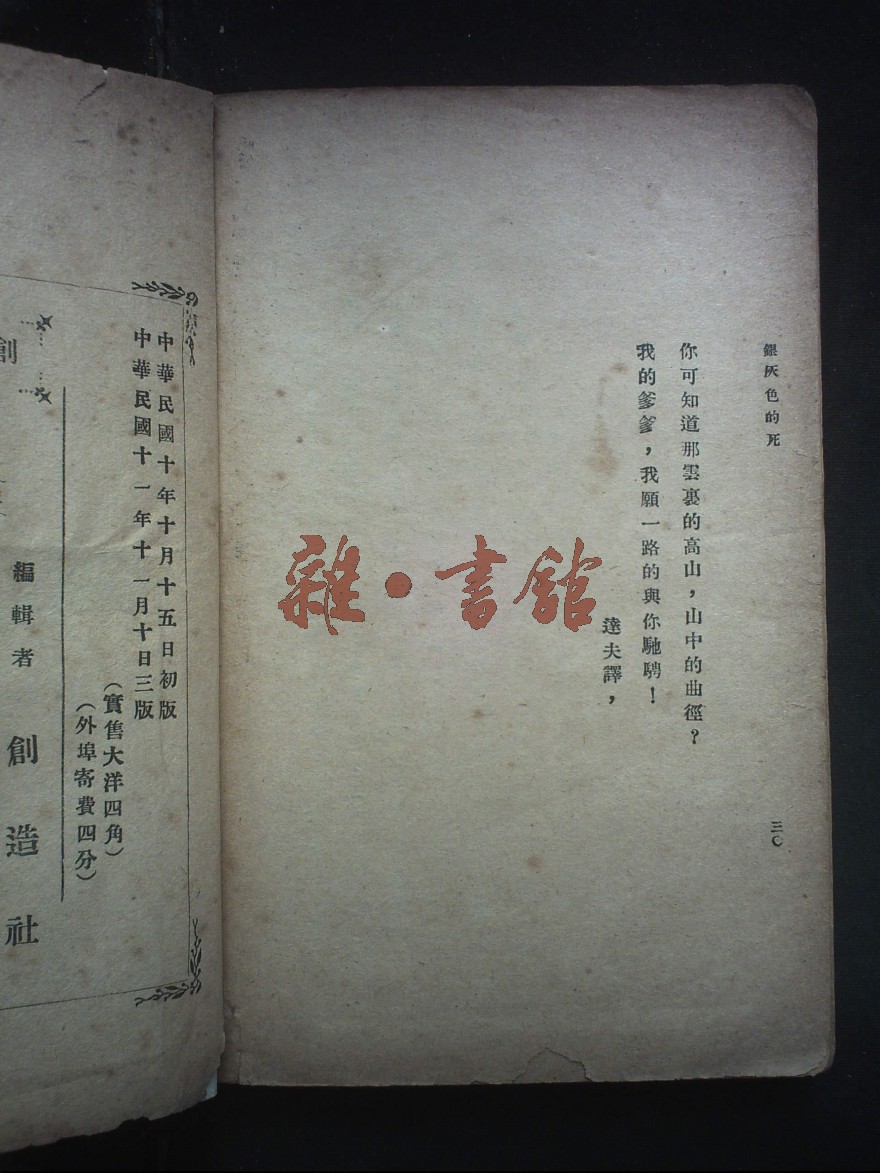 銀灰色的死
三〇
你可知道那雲裏的高山，山中的曲徑？
我的爹爹，我願一路的與你馳騁！
達夫譯，
雜·書館
中華民國十年十月十五日初版
中華民國十一年十一月十日三版
（實售大洋四角）
（外埠寄費四分）
編輯者
創造社
創